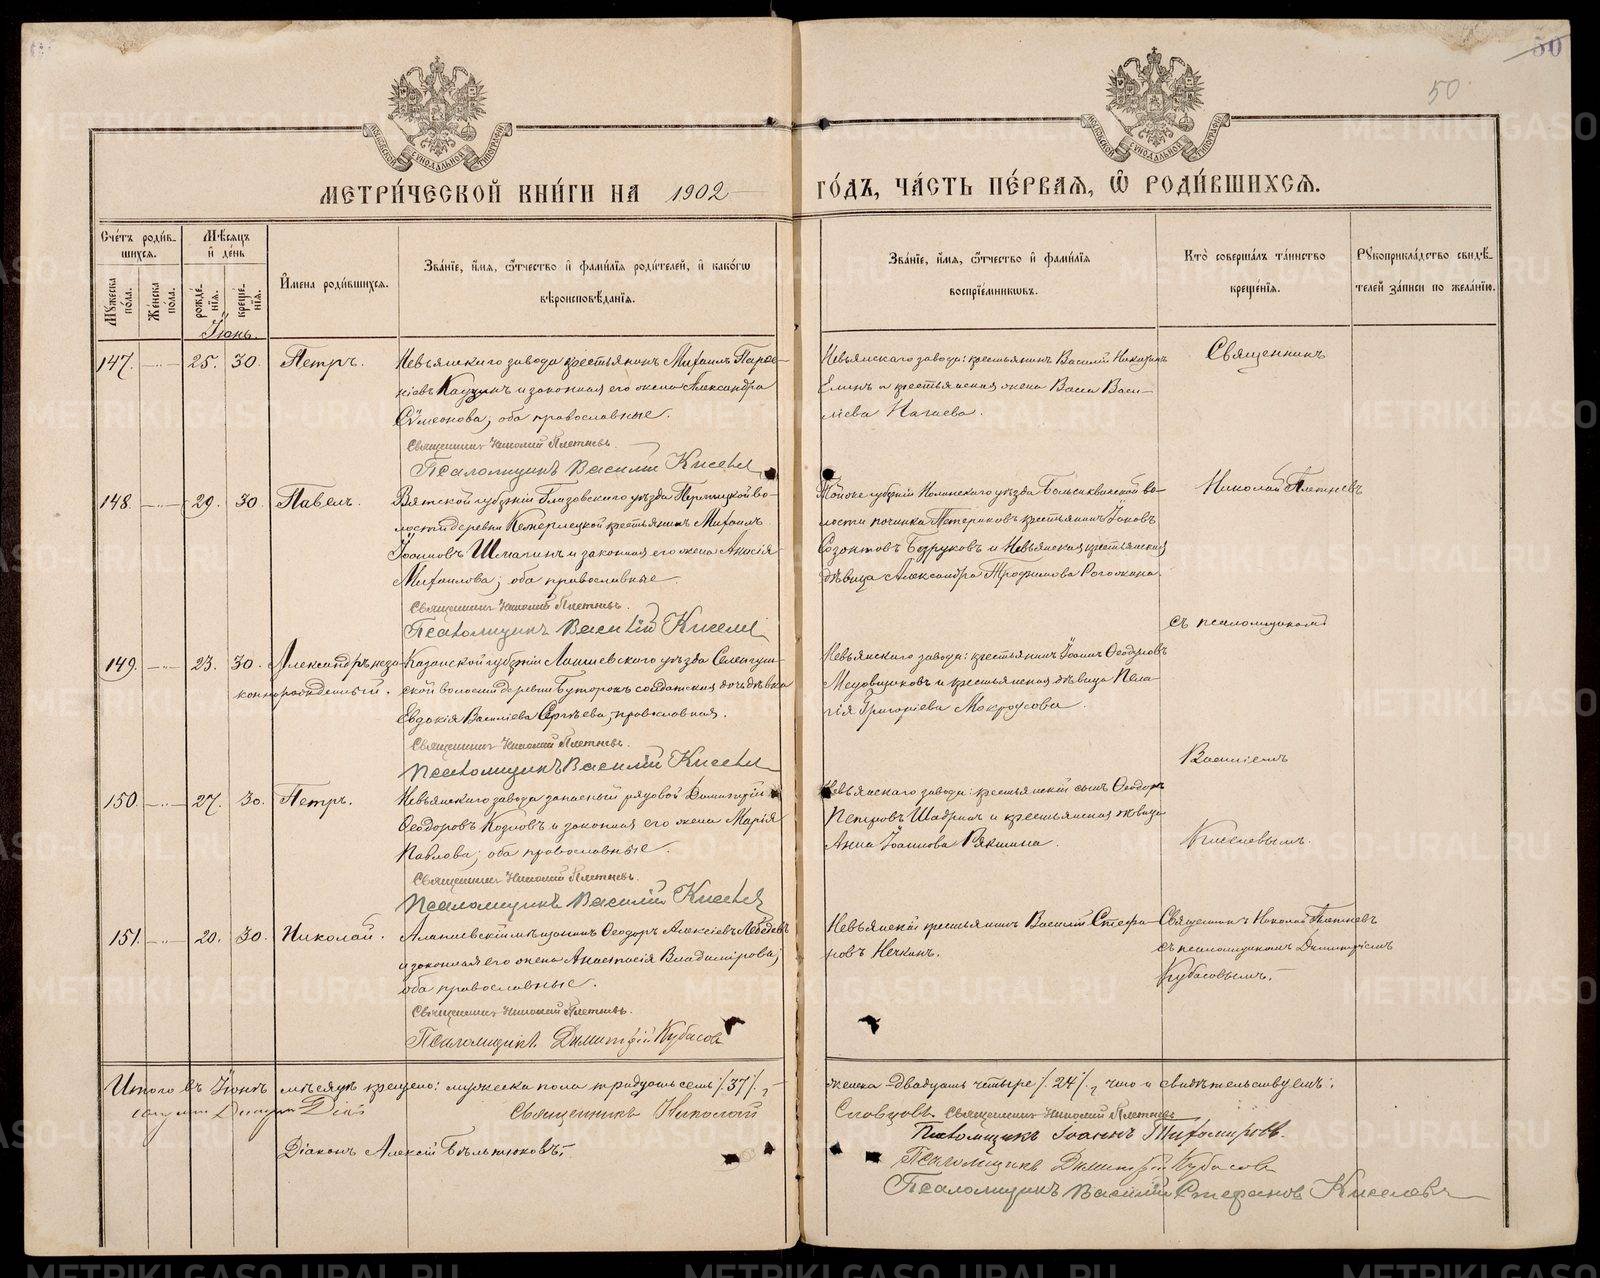 50
50
МЕТРИ́ЧЕСКОЙ КНИ́ГИ НА 1902 ГО́ДЪ, ЧА́СТЬ ПЕ́РВАЯ, Ѡ РОДИ́ВШИХСЯ.
Сче́тъ роди́в-
шихся.
Мꙋжеска
по́ла.
Же́нска
пола.
Мѣ́сяцъ
и де́нь
рожде́-
нїя.
креще́-
нїя.
И́мена роди́вшихся.
Зва́нїе, и́мя, ѻ́тчество и фами́лїя роди́телей, и како́гѡ
вѣроисповѣ́данїя.
Зва́нїе, и́мя, ѻ́тчество и фами́лїя
воспрїе́мниковъ.
Кто̀ соверша́лъ та́инство
креще́нїя.
Рꙋкоприкла́дство свидѣ́-
телей за́писи по жела́нїю.
Іюнь.
147. 25. 30. Петръ.
Невьянскаго завода крестьянинъ Михаилъ Парѳе-
ніевъ и законная его жена Александра
Сѵмеонова; оба православные.
Священникъ Николай Плетневъ.
Псаломщикъ Василій Киселевъ
Невьянскаго завода: крестьянинъ Василій
и крестьянская жена Васи-
ліева
Священникъ
148. 29. 30. Павелъ.
Вятской губерніи Глазовскаго уѣзда во-
лости деревни крестьянинъ Михаилъ
Іоанновъ Шмагинъ и законная его жена
Михаилова; оба православные.
Священникъ Николай Плетневъ.
Псаломщикъ Василій Киселевъ
Тойже губерніи Нолинскаго уѣзда во-
лости починка крестьянинъ Іаковъ
Созонтовъ и Невьянская крестьянская
дѣвица Александра Трофимова
Николай Плетневъ
съ псаломщикомъ
149. 23. 30. Александръ неза-
коннорожденный.
Казанской губерніи Лаишевскаго уѣзда
ской волости деревни солдатская дочь дѣвка
Евдокія Василіева Сергѣева, православная.
Священникъ Николай Плетневъ.
Псаломщикъ Василій Киселевъ
Невьянскаго завода: крестьянинъ Іоаннъ Ѳеодоровъ
и крестьянская дѣвица Пела-
гія Григоріева Мокроусова.
Василіемъ
150. 27. 30. Петръ.
Невьянскаго завода запасный рядовой Димитрій
Ѳеодоровъ Козловъ и законная его жена Марія
Павлова; оба православные.
Священникъ Николай Плетневъ.
Псаломщикъ Василій Киселевъ
Невьянскаго завода: крестьянскій сынъ Ѳеодоръ
Петровъ и крестьянская дѣвица
Анна Іоаннова
Киселевымъ.
151. 20. 30. Николай.
Алапаевскій мѣщанинъ Ѳеодоръ Алексіевъ Лебедевъ
и законная его жена Анастасія Владимірова;
оба православные.
Священникъ Николай Плетневъ.
Псаломщикъ Димитрій Кубасовъ
Невьянскій крестьянинъ Василій Стефа-
новъ Нечкинъ.
Священникъ Николай Плетневъ
съ псаломщикомъ Димитріемъ
Кубасовымъ.
Итого въ Іюнѣ мѣсяцѣ крещено: мужеска пола тридцать семь /. 37 /.,
женска двадцать четыре /. 24 /., что и свидѣтельствуемъ:
Священникъ Николай
Словцовъ. Священникъ Николай Плетневъ
Псаломщикъ Іоаннъ Тихомировъ.
Діаконъ Алексій Бѣльтюковъ.
Псаломщикъ Димитрій Кубасовъ
Псаломщикъ Василій Стефановъ Киселевъ
METRIKI.GASO-URAL.RU